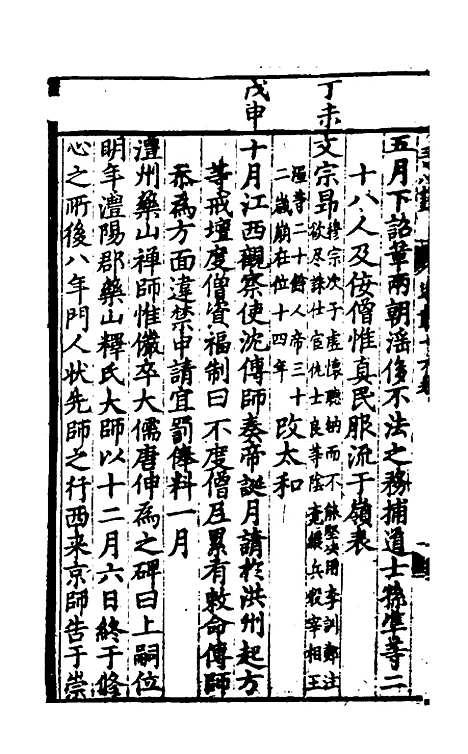 丁未
戊申
五月下詔革兩朝淫侈不法之務捕道士孫準等二
十八人及佞僧惟真民服流于嶺表
文宗昂穆宗次子虛懷聽納而不能堅決用李訓鄭注
欲尽誅仕官仇士良等陰竟縱兵殺宰相王
涯等二十餘人帝三十
二歲崩在位十四年
改太和
十月江西觀察使沈傳師奏帝誕月請於洪州起方
等戒壇度僧資福制曰不度僧尼累有敕命傳師
忝為方面違禁申請宜罰俸料一月
澧州藥山禪師惟儼卒大儒唐伸為之碑曰上嗣位
明年澧陽郡藥山釋氏大師以十二月六日終于修
心之所後八年門人狀先師之行西来京師告于崇